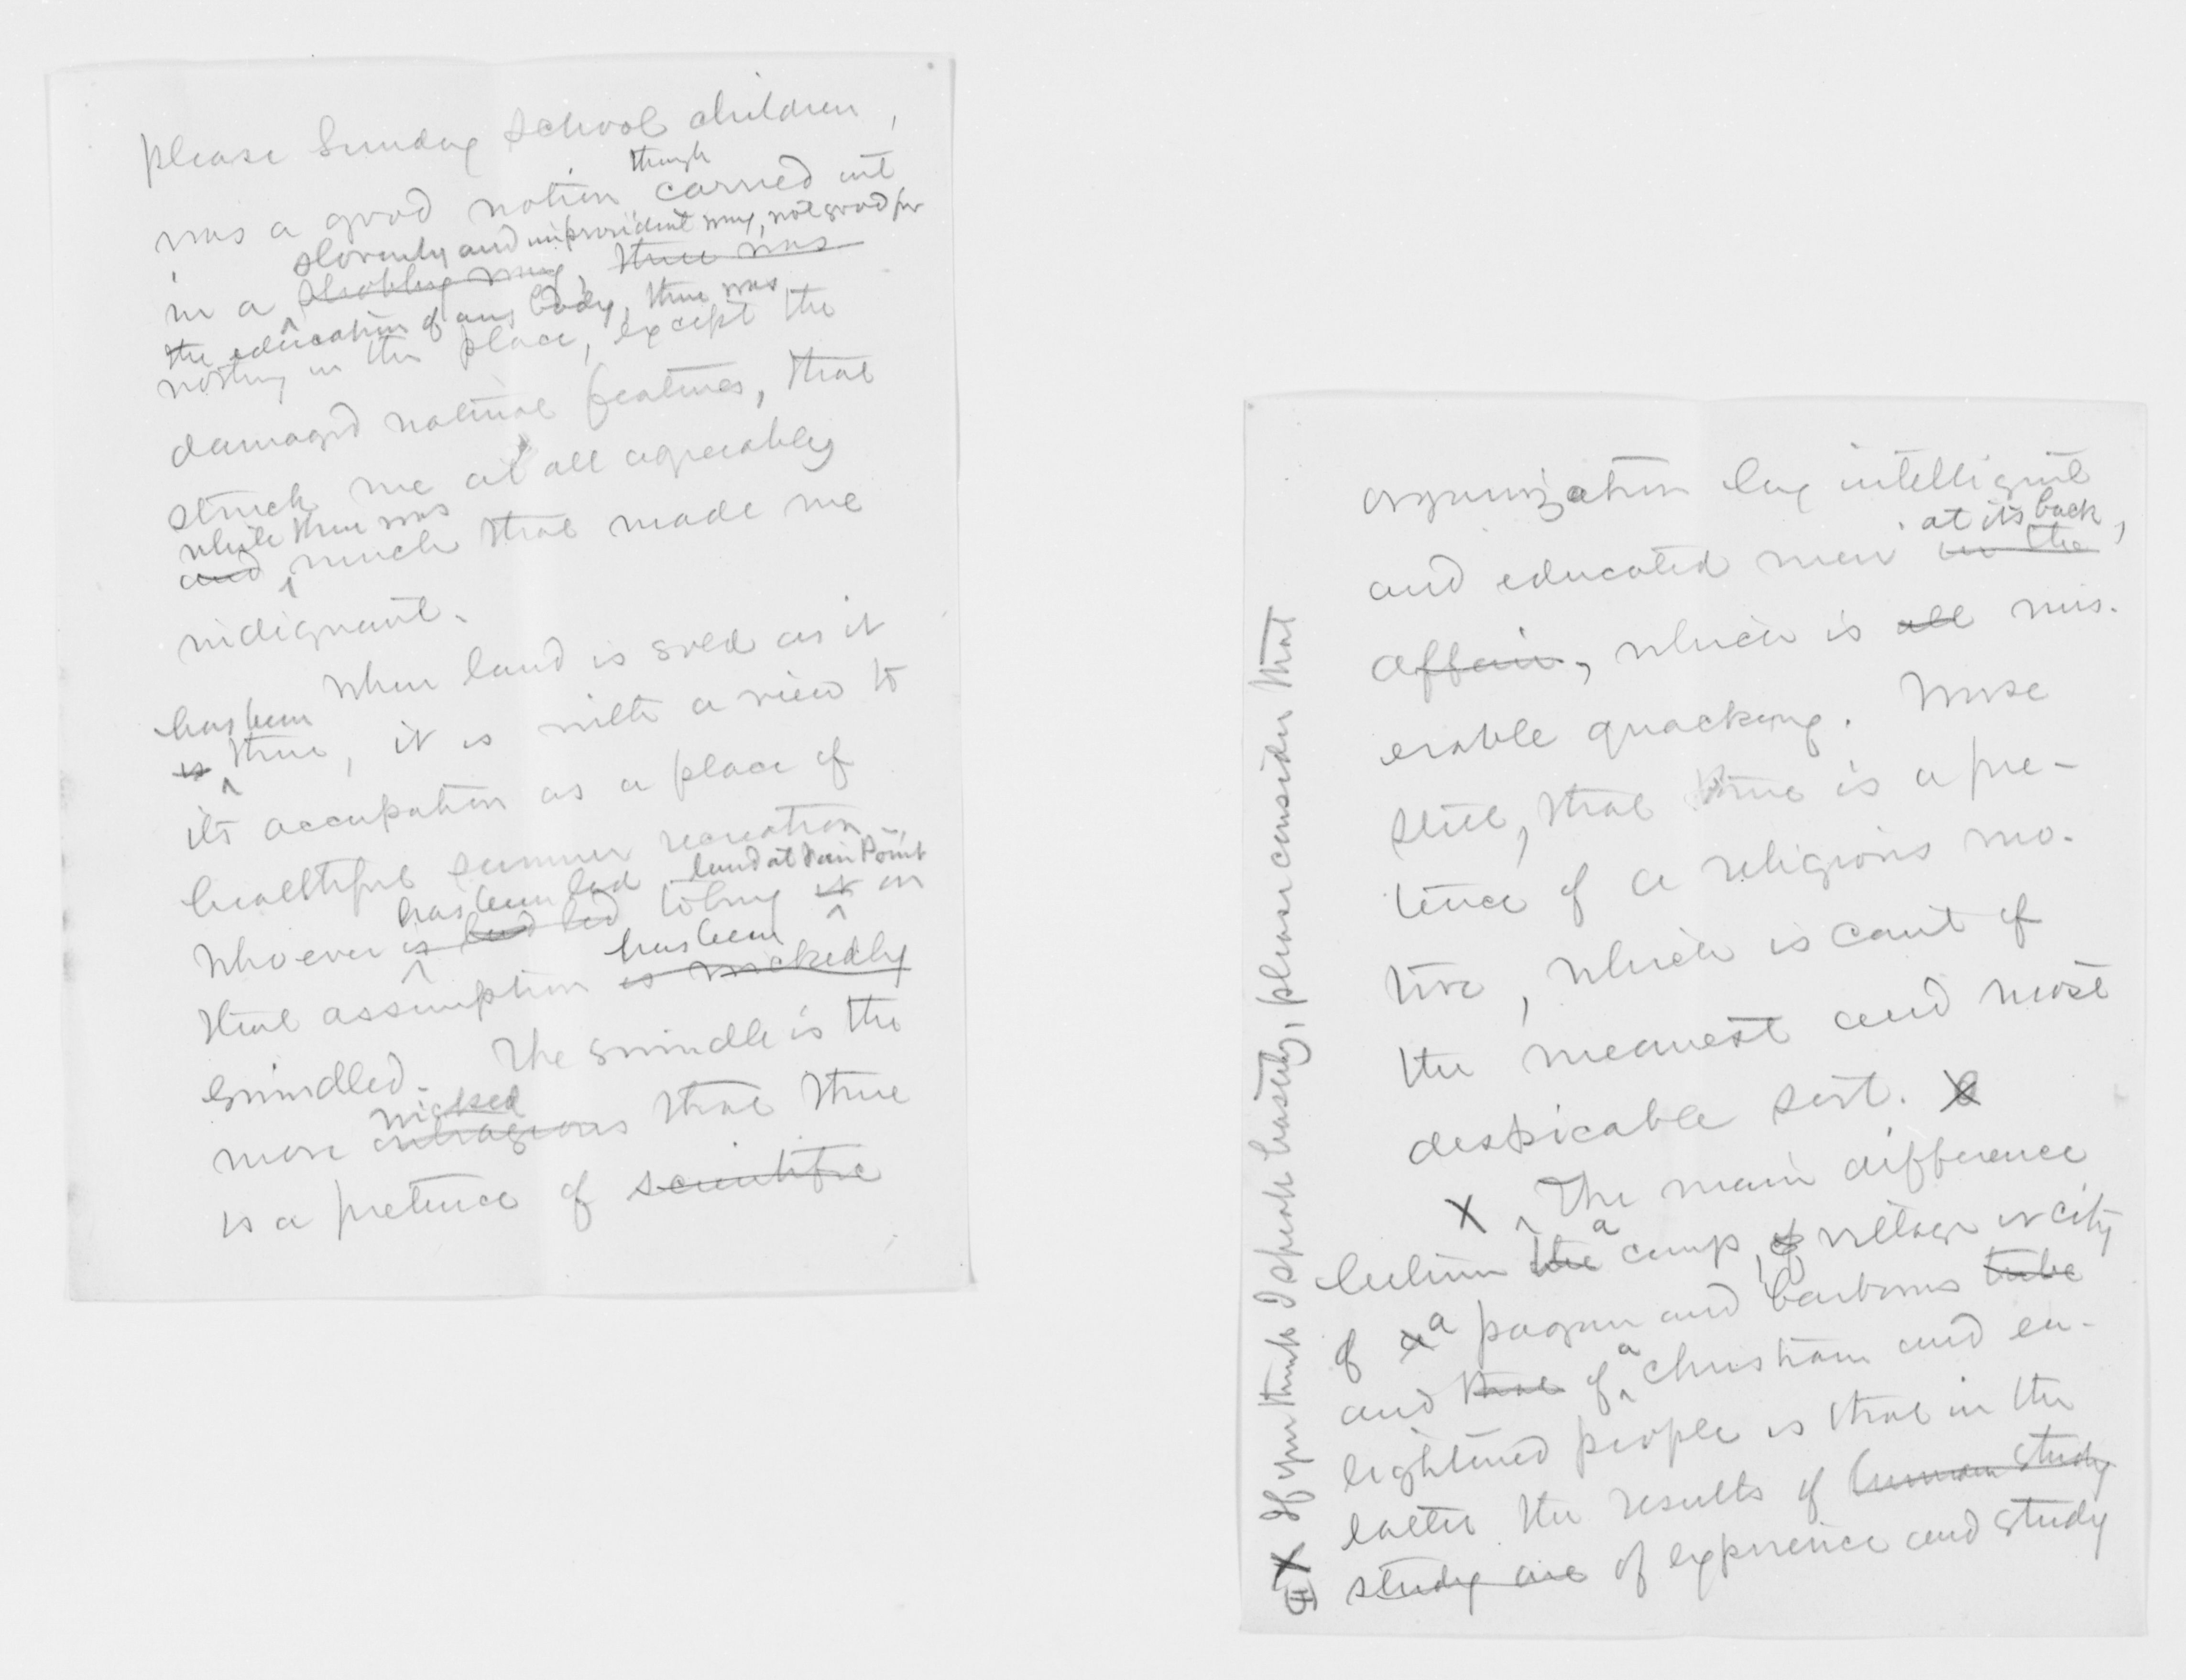 please Sunday School children,
though
was a good notion, carried out
slovenly and improvident way, not good for
in a shabby way, there was
the education of any body, there was
nothing in the place, except the
damaged natural features, that
struck me at all agreeably
while there was
and much that made me
indignant.
When land is sold as it
has been
is there, it is with a view to
its occupation as a place of
healthful summer recreation.
has been led land at Fair Point
Whoever is led to buy it on
has been
that assumption is wickedly
swindled. The swindle is the
wicked
more outrageous that there
is a pretence of scientific
organization by intelligent
at its back,
and educated men in the
affair, which is all mis-
erable quackery. Worse
still, that there is a pre-
tence of a religious mo-
tive, which is cant of
the meanest and most
despicable sort. X
X The main difference
a
between the camp, of village or city
of a a pagan and barbarous tribe
a
and that of Christian and en-
lightened people is that in the
latter the results of human study
study are of experience and study
X If you think I speak hastily, please consider that